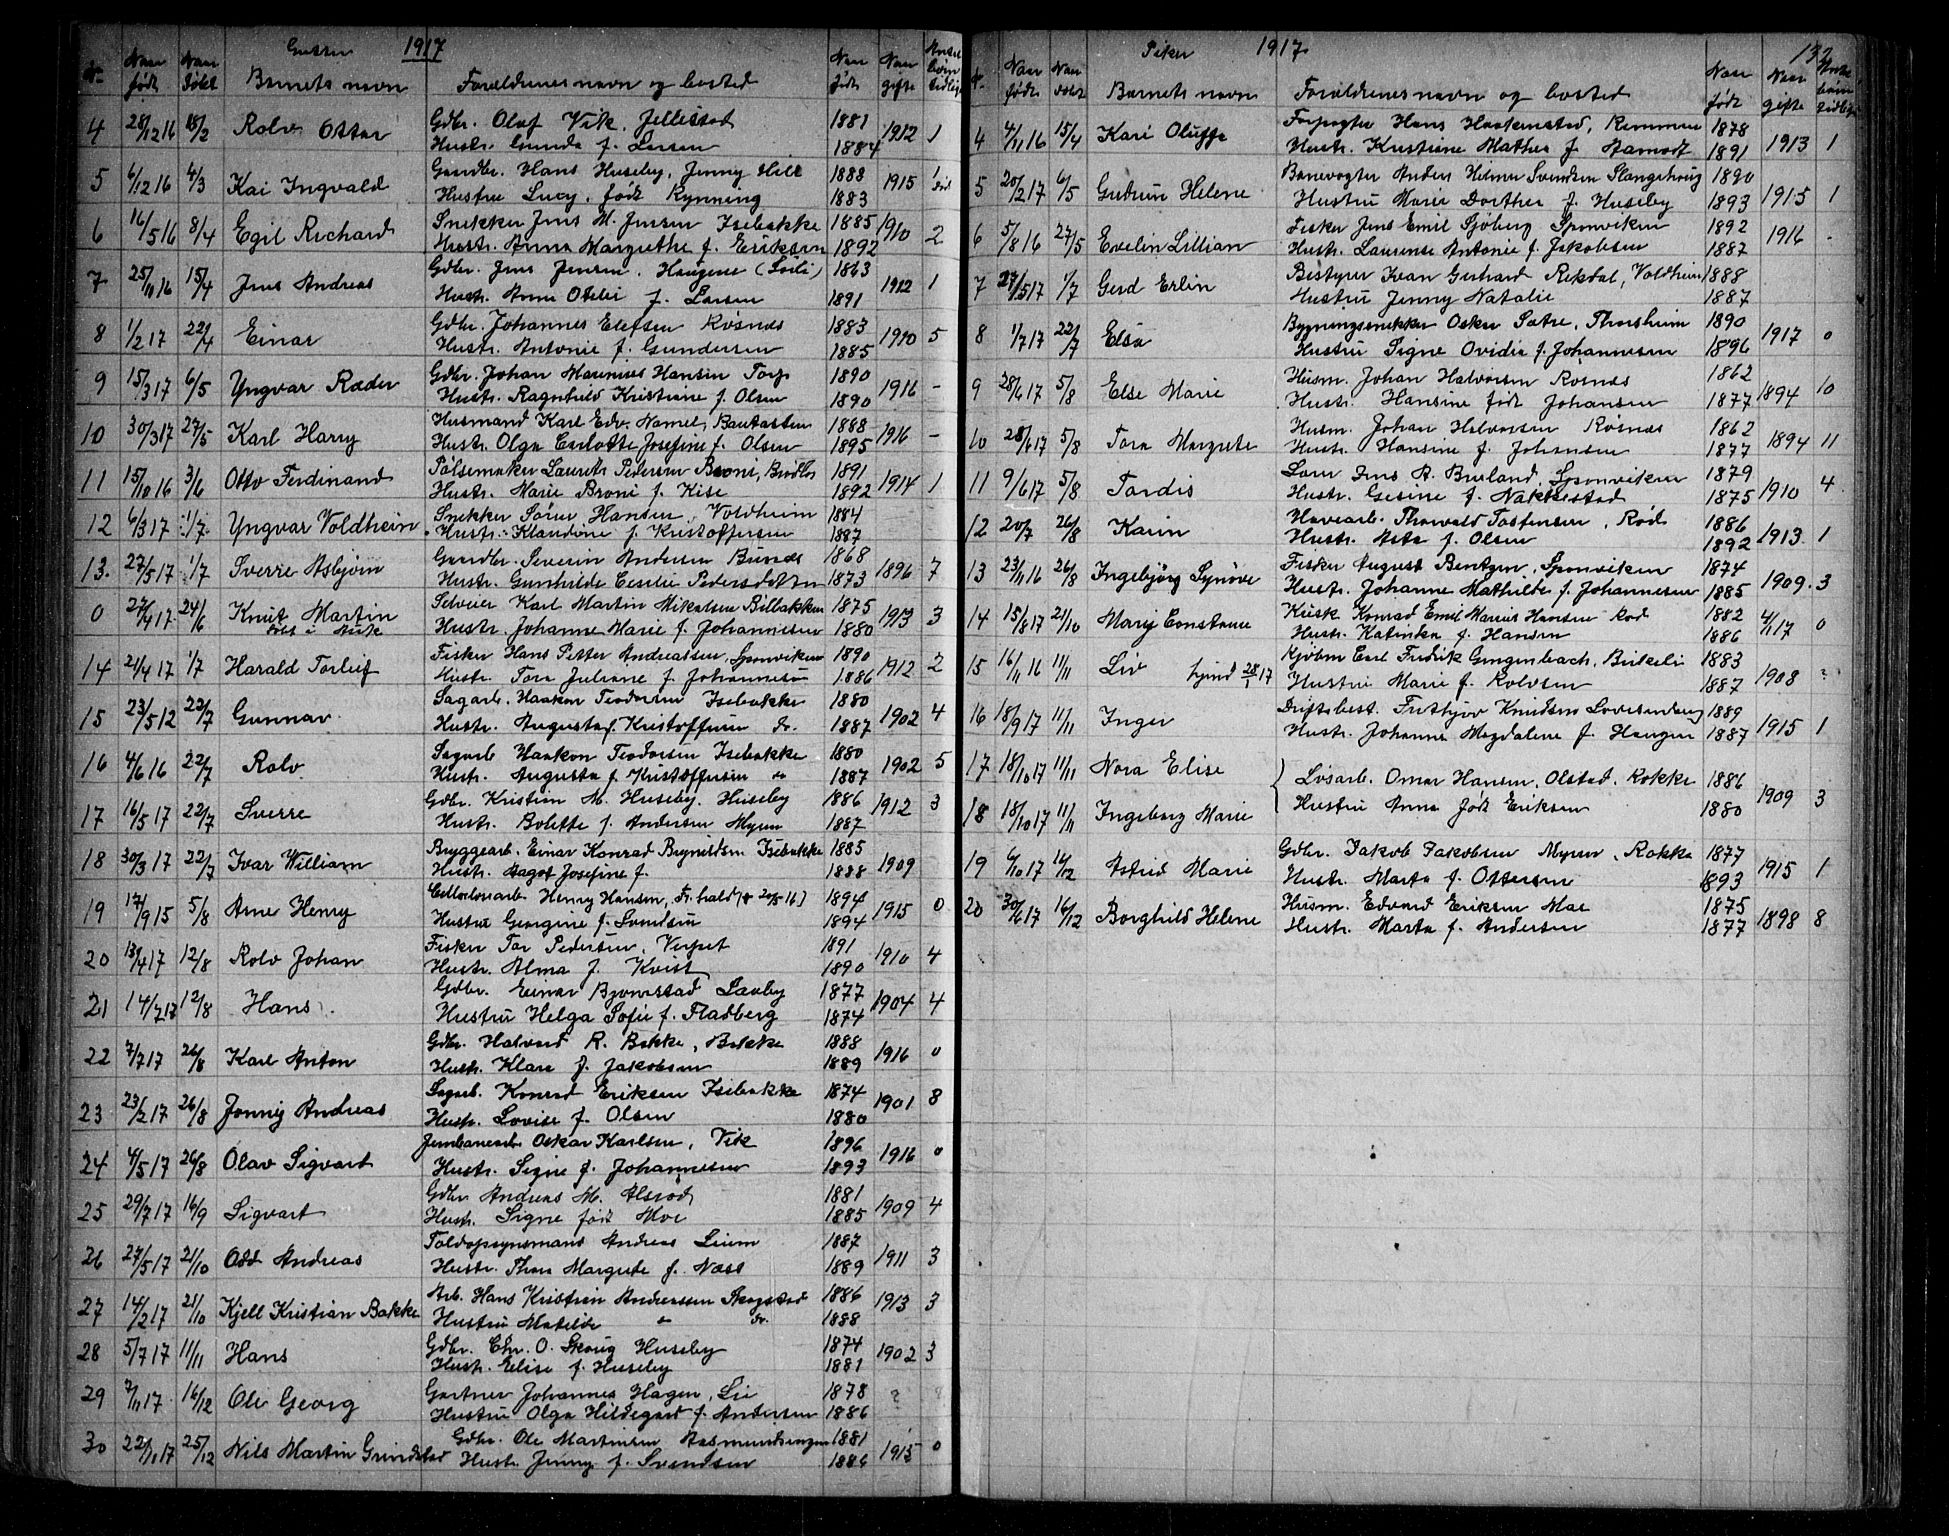 Gutter 1917
Nr. Naar født Naar døbt Barnets navn Forældrenes navn og bosted Naar født Naar gifte Antal børn tidlige
4 28/12 16 18/2 Rolv Ottar Gdbr. Olaf Vik, Jellestad 1881 1912 1
Hustr. Gunda f. Larsen 1884
5 6/12 16 4/3 Kai Ingvald Gaardbr. Hans Huseby, Jenny Hill 1888 1915 1
Hustru Lucy, født Rynning 1883
6 16/5 16 8/4 Egil Richard Snekker Jens M. Jensen Isebakke 1885 1910 2
Hustr. Anna Margrethe f. Eriksen 1892
7 25/11 16 15/4 Jens Andreas Gdbr. Jens Jensen, Haugene 1863 1912 1
Hustr. Anne Otelie f. Larsen 1891
8 1/2 17 22/4 Einar Gdbr. Johannes Elefsen Røsnæs 1883 1910 5
Hustr. Antonie f. Gundersen 1885
9 15/3 17 6/5 Yngvar Ræder Gdbr. Johan Marenius Hansen Torp 1890 1916 -
Hustr. Ragnhild Kristiane f. Olsen 1890
10 30/3 17 27/5 Karl Harry Husmand Karl Edv. Hamel, Bautasten 1888 1916 -
Hustr. Olga Carlotte Josefine f. Olsen 1895
11 15/10 16 3/6 Otto Ferdinand Pølsemaker Laurits Pedersen Broni, 1891 1914 1
Hustr. Marie Broni f. Kise 1892
12 6/3 17 1/7 Yngvar Voldheim Snekker Sører Hansen, Voldheim 1884
Hustr. Klandine f. Kristoffersen 1887
13. 27/5 17 1/7 Sverre Asbjørn Gaardbr. Severin Andersen Bunæs 1868 1896 7
Hustr. Gunhilde Cecilie Pedersdatter 1873
0 27/4 17 24/6 Knut Martin Selveier Karl Martin Mikalsen Bilbakken 1875 1913 3
Hustr. Johanne Marie f. Johannesen 1880
14 21/4 17 1/7 Harald Torleif Fisker Hans Petter Andreassen, Sponviken 1890 1912 2
Hustr. Tora Juliane f. Johannesen 1886
15 23/5 12 22/7 Gunnar Sagarb. Haakon Teodorsen Isebakke 1880 1902 4
Hustr. Augusta f. Kristoffersen do. 1887
16 4/6 16 22/7 Rolv. Sagarb. Haakon Teodorsen Isebakke 1880 1902 5
Hustr. Augusta f. Kristoffersen " 1887
17 16/5 17 22/7 Sverre Gdbr. Kristian M. Huseby, Huseby 1886 1912 3
Hustr. Bolette f. Andersen Myren 1887
18 30/3 17 22/7 Ivar William Bryggearb. Einar Konrad Brynildsen Isebakke 1885 1909
Hustr. Dagot Josefine f. 1888
19 17/9 15 5/8 Arne Henry Cellulosearb. Henry Hansen, Fr.hald († 20/5 16) 1894 1915 0
Hustru Georgine f. Svendsen 1894
20 13/4 17 12/8 Rolv Johan Fisker Tor Pedersen, Verpet 1891 1910 4
Hustr. Alma f. Kvist 1890
21 14/7 17 12/8 Hans Gdbr. Einar Bjørnestad Låby 1877 1904 4
Hustru Helga Sofie f. Fladberg 1874
22 7/7 17 26/8 Karl Anton Gdbr. Halvard R. Bakke, Bakke 1888 1916 0
Hustr. Klara f. Jakobsen 1889
23 23/2 17 26/8 Jonny Andreas Sagarb. Konrad Eriksen Isebakke 1874 1901 8
Hustr. Lovise f. Olsen 1880
24 4/5 17 26/8 Olav Sigvart Jernbanearb. Oskar Karlsen, Vik 1896 1916 0
Hustr. Signe f. Johannesen 1893
25 29/7 17 16/9 Sigvart Gdbr. Andreas M. Alsrød 1881 1909 4
Hustr. Signe født Moe 1885
26 27/5 17 21/10 Odd Andreas Toldopsynsmand Andreas Lium 1887 1911 3
Hustr. Thora Margrete f. Næss 1889
27 14/2 17 21/10 Kjell Kristian Bakke Arb. Hans Kristian Andreassen Skogstad 1886 1913 3
Hustru Matilde " do. 1888
28 5/7 17 11/11 Hans Gdbr. Chr. O. Skoug Huseby 1874 1902 3
Hustr. Elise f. Huseby 1881
29 7/11 17 16/12 Ole Georg Gartner Johannes Hagen, Lie 1878 ? ?
Hustru Olga Hildegard f. Andersen 1886
30 22/11 17 25/12 Nils Martin Grindstad Gdbr. Ole Martinsen 1881 1915 0
Hustr. Jenny f. Svendsen 1886
Piker 1917 132
Nr. Naar født Naar døbt Barnets navn Forældrenes navn og bosted Naar født Naar gifte Antal børn tidlige
4 4/11 16 15/4 Kari Oluffa Forpagter Hans Haakenstad, Remmen 1878 1913 1
Hustr. Kristiane Mathea f. Aamodt 1891
5 20/2 17 6/5 Gudrun Helene Banevogter Anders Helmer Svendsen Slangehoug 1890 1915 1
Hustru Marie Dorthea f. Huseby 1893
6 5/8 16 27/5 Evelin Lillian Fisker Jens Emil Sjøberg Sponviken 1892 1916 -
Hustr. Laurense Antonie f. Jakobsen 1887
7 27/5 17 1/7 Gerd Erlin Bestyrer Ivan Gerhard Rekdal, Voldheim 1888
Hustru Jenny Natalie 1887
8 1/7 17 22/7 Elsa Bygningssnekker Oskar Sætre, Thorsheim 1890 1917 0
Hustru Signe Ovidia f. Johannesen 1896
9 28/6 17 5/8 Else Marie Husm. Johan Halvorsen Rosnæs 1862 1894 10
Hustr. Hansine født Johansen 1877
10 28/6 17 5/8 Tora Margrete Husm. Johan Halvorsen Rosnæs 1862 1894 11
Hustr. Hansine f. Johansen 1877
11 9/6 17 5/8 Tordis Lærer Jens A. Bueland, Sponviken 1879 1910 4
Hustr. Gesine f. Nakkestad 1875
12 20/7 26/8 Karin Havearb. Thorvald Tostensen, Rød 1886 1913. 1
Hustr. Asta f. Olsen 1892
13 23/11 16 26/8 Ingebjørg Synøve Fisker August Bentzen, Sponviken 1874 1909. 3
Hustr. Johanne Mathilde f. Johannesen 1885
14 15/8 17 21/10 Mary Constance Kusk Konrad Emil Marius Hansen Rød 1882 4/11 17 0
Hustr. Katinka f. Hansen 1886
15 16/11 16 11/11 Liv hjemd 28/1 17 Kjøbm Carl Fredrik Gengenbach, Birkeli 1883 1908 ?
Hustru Marie f. Rolvsen 1887
16 18/9 17 11/11 Inger Driftsbest. Frithjov Knudsen Lovisenberg 1889 1915 1
Hustr. Johanne Magdalene f. Haugen 1887
17 18/10 17 11/11 Nora Elise Løsarb. Omar Hansen, Olstad, Rokke 1886 1909 3
18 18/10 17 11/11 Ingeborg Marie Hustru Anna født Eriksen 1880
19 6/10 17 16/12 Astrid Marie Gdbr. Jakob Jakobsen Myren, Rokke 1877 1915 1
Hustr. Marta f. Ottersen 1893
20 30/6 17 16/12 Borghild Helene Husm. Edvard Eriksen Moe 1875 1898 8
Hustr. Marta f. Andersen 1877